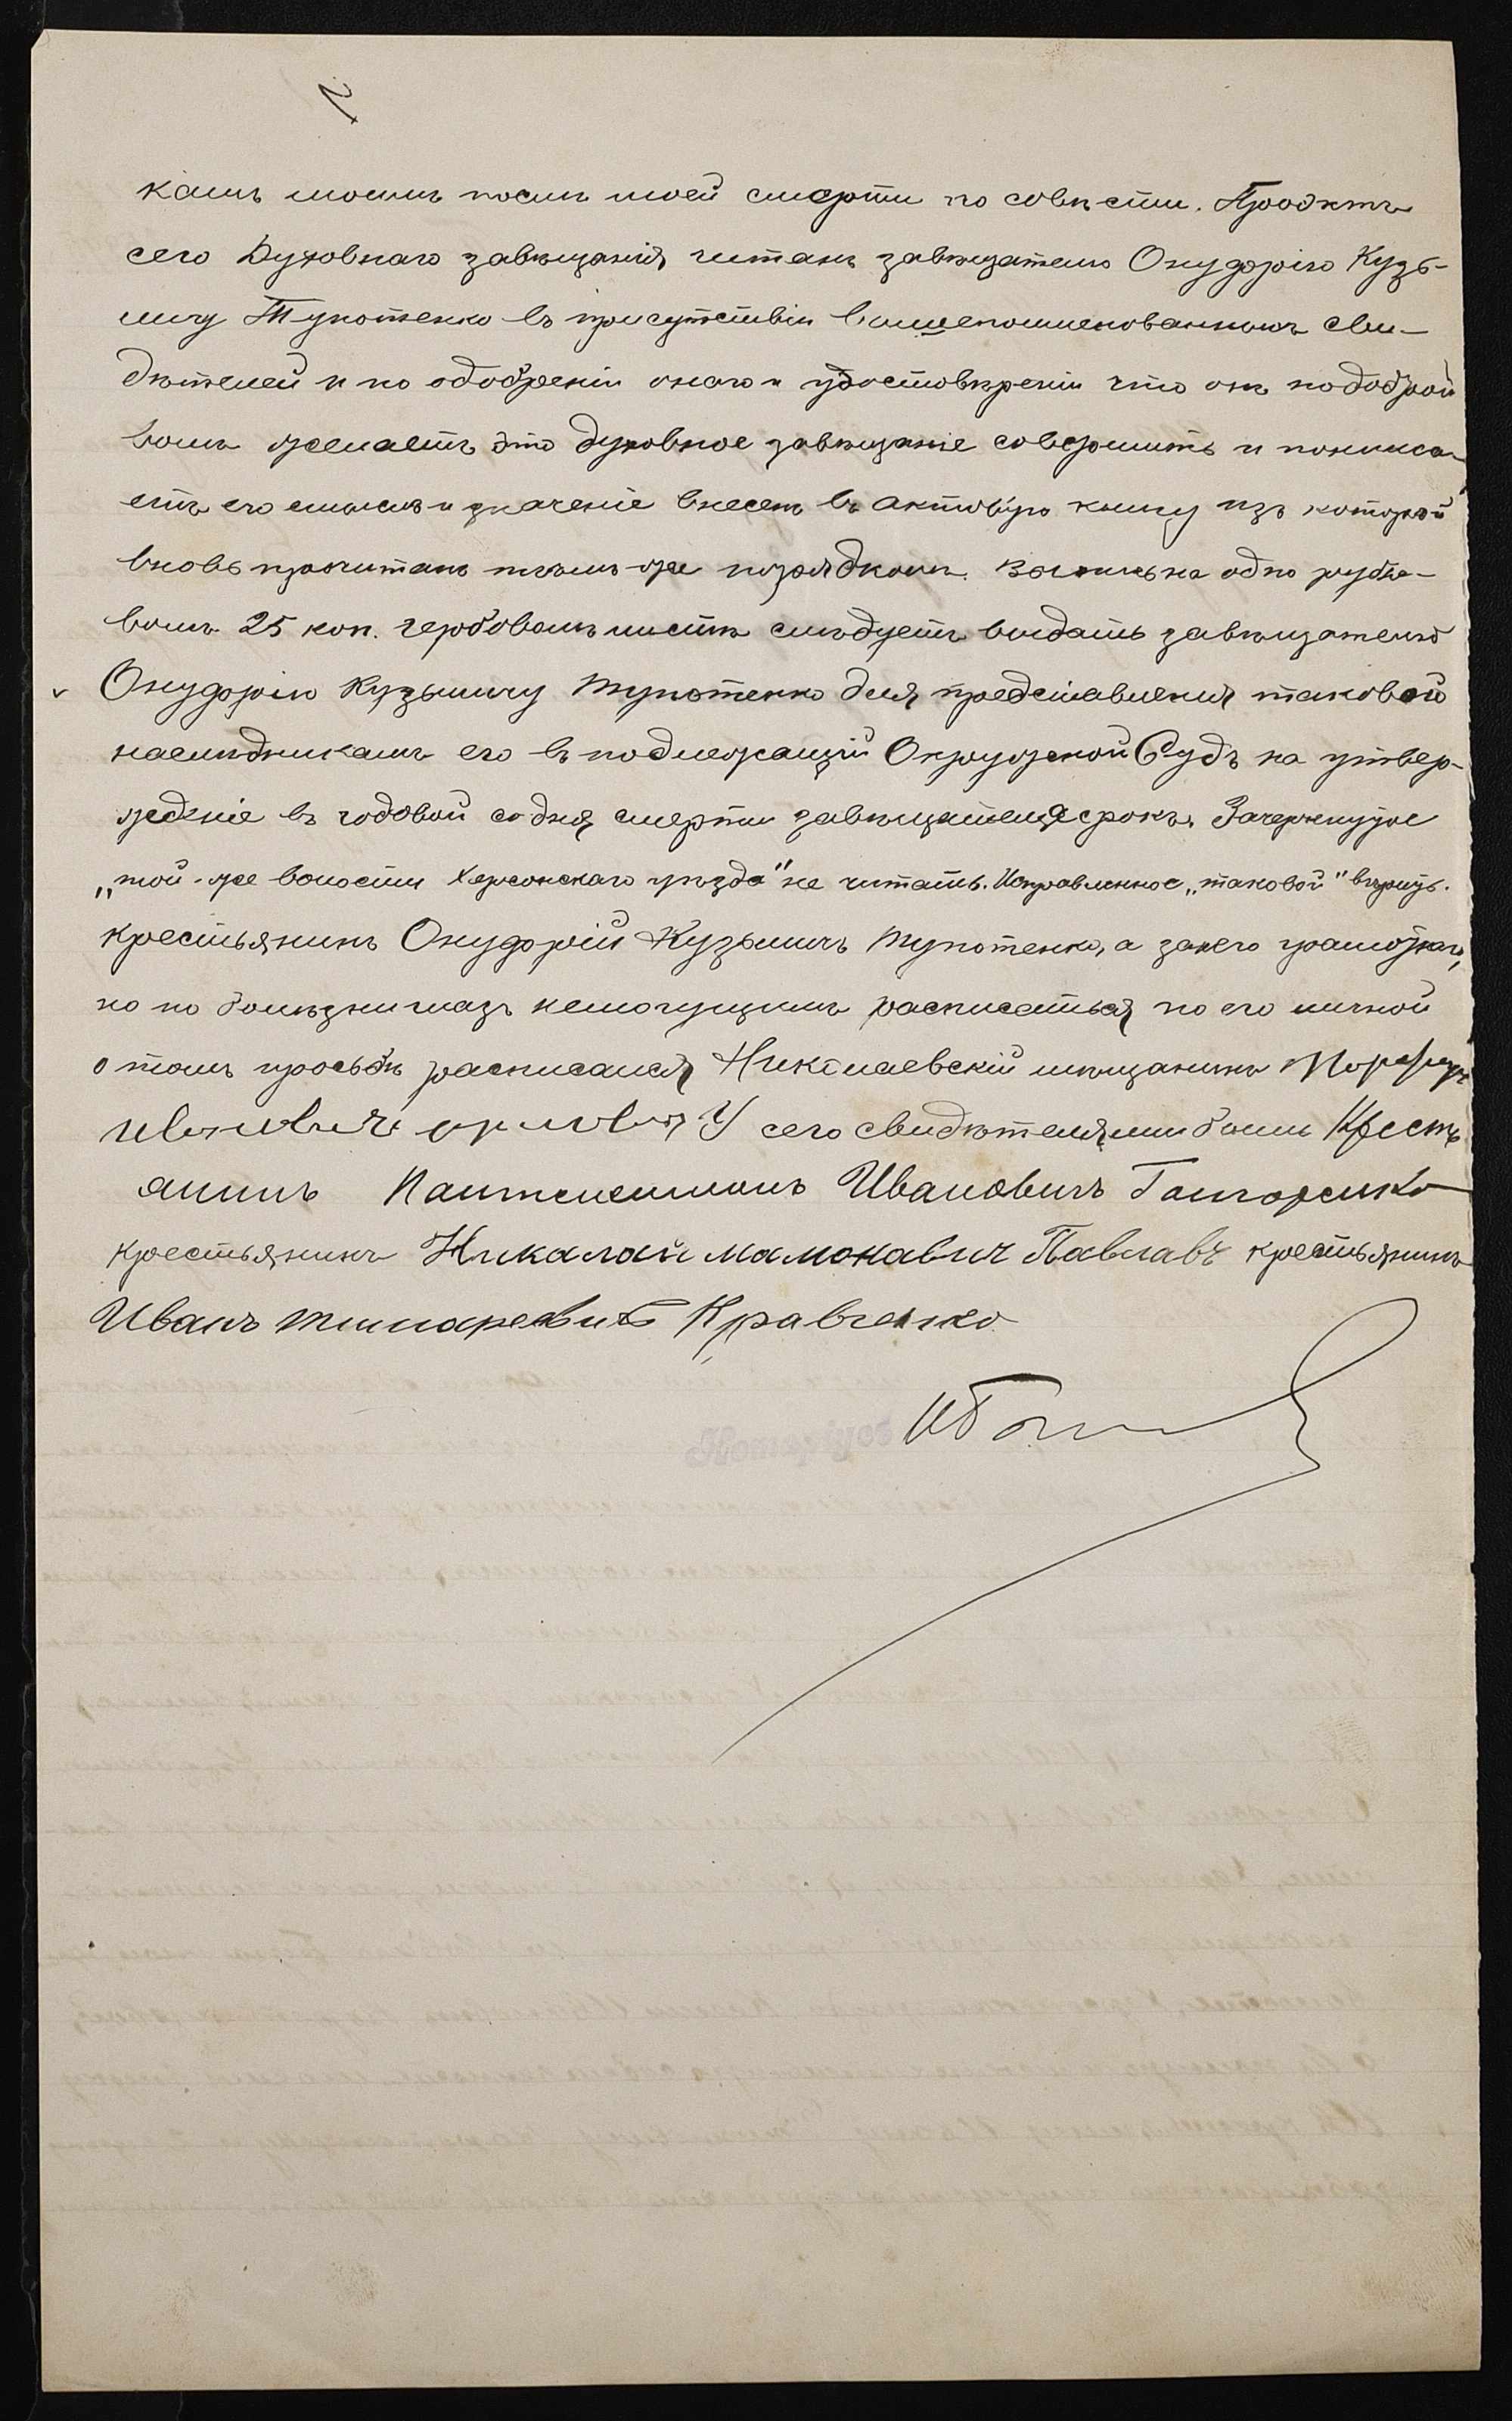 камъ моимъ послѣ моей смерти по совѣсти. Проэктъ
сего Духовнаго завѣщанія читанъ завѣщателю Онуфрію Кузь-
мичу Тупотенко въ присутствіи вышепоименованныхъ сви-
дѣтелей и по одобреніи онаго и удостовѣреніи что онъ по доброй
волѣ желаетъ это духовное завѣщаніе совершить и понима-
етъ его смыслъ и значеніе внесенъ въ актовую книгу изъ которой
вновь прочитанъ тѣмъ-же порядкомъ. Выпись на одно рубле-
вомъ 25 коп. гербовомъ листѣ слѣдуетъ выдать завѣщателю
Онуфрію Кузьмичу Тупотенко для представленія таковой
наслѣдникамъ его въ подлежащій Окружной Судъ на утвер-
жденіе въ годовой со дня смерти завѣщателя срокъ. Зачеркнутое
„той-же волости Херсонскаго уѣзда" не читать. Исправленное „таковой" вѣрить.
Крестьянинъ Онуфрій Кузьмичъ Тупотенко, а за него грамотнаго,
но по болѣзни глазъ немогущимъ расписаться по его личной
о томъ просьбѣ расписался Николаевскій мѣщанинъ
Ивановичъ Орловъ У сего свидѣтелями были Кресть
янинъ Пантелеимонъ Ивановичъ
крестьянинъ Никалай Мамонавич Павлавъ крестьянинъ
Иванъ Кравченко
Нотаріусъ